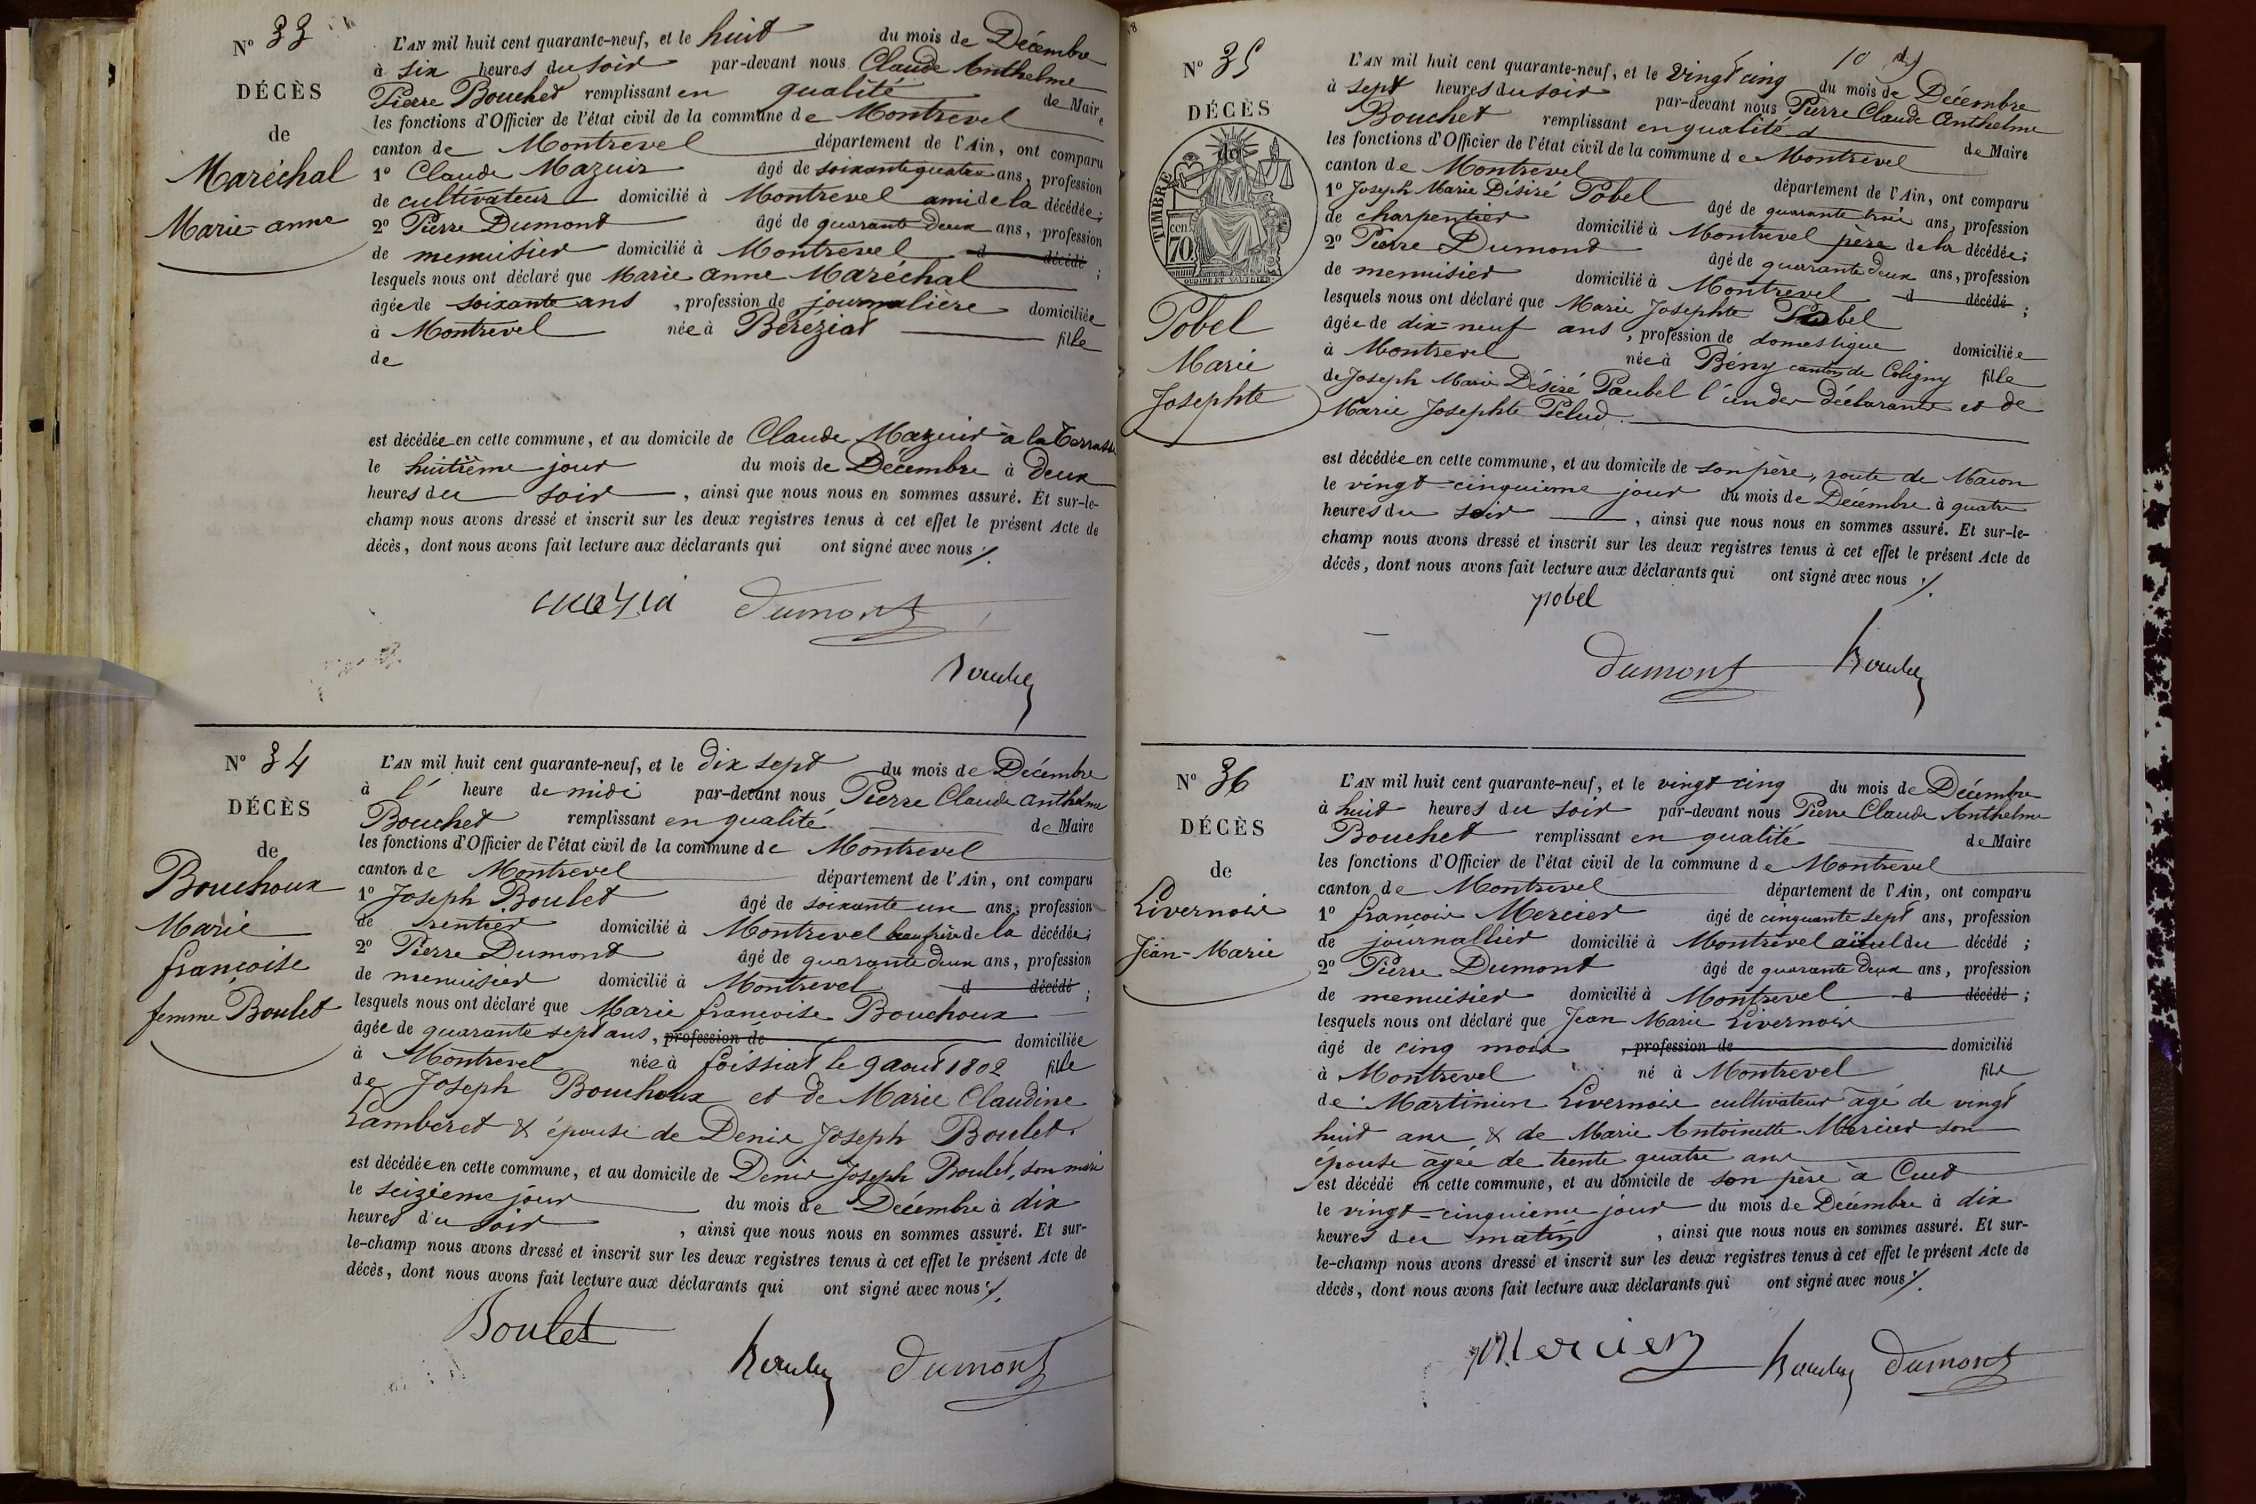 N° 33
DÉCÈS
de
Maréchal
Marie-anne
L'AN mil huit cent quarante-neuf, et le huit du mois de Décembre
à six heures du soir par-devant nous Claude Anthelme
Pierre Bouchet remplissant en qualité de Maire
les fonctions d'Officier de l'état civil de la commune de Montrevel
canton de Montrevel département de l'Ain, ont comparu
1° Claude Mazuir âgé de soixante quatre ans, profession
de cultivateur domicilié à Montrevel ami de la décédée;
2° Pierre Dumont âgé de quarante deux ans, profession
de menuisier domicilié à Montrevel d décédé ;
lesquels nous ont déclaré que Marie anne Maréchal
âgée de soixante ans , profession de journalière domiciliée
à Montrevel née à Béréziat fille
de
est décédée en cette commune, et au domicile de Claude Mazuir à la Terrasse
le huitième jour du mois de Décembre à deux
heures du soir , ainsi que nous nous en sommes assuré. Et sur-le-
champ nous avons dressé et inscrit sur les deux registres tenus à cet effet le présent Acte de
décès, dont nous avons fait lecture aux déclarants qui ont signé avec nous ./.
Dumont
Bouchet
N° 34
DÉCÈS
de
Bouchoux
Marie
françoise
femme Boulet
L'AN mil huit cent quarante-neuf, et le dix sept du mois de Décembre
à l' heure de midi par-devant nous Pierre Claude anthelme
Bouchet remplissant en qualité de Maire
les fonctions d'Officier de l'état civil de la commune de Montrevel
canton de Montrevel département de l'Ain, ont comparu
1° Joseph Boulet âgé de soixante un ans, profession
de rentier domicilié à Montrevel beaufrère de la décédée;
2° Pierre Dumont âgé de quarante deux ans, profession
de menuisier domicilié à Montrevel d décédé ;
lesquels nous ont déclaré que Marie françoise Bouchoux
âgée de quarante sept ans, profession de domiciliée
à Montrevel née à foissiat le 9 aout 1802 fille
de Joseph Bouchoux et de Marie Claudine
Lamberet & épouse de Denis Joseph Boulet.
est décédée en cette commune, et au domicile de Denis Joseph Boulet, son mari
le seizième jour du mois de Décembre à dix
heures du soir , ainsi que nous nous en sommes assuré. Et sur-
le-champ nous avons dressé et inscrit sur les deux registres tenus à cet effet le présent Acte de
décès, dont nous avons fait lecture aux déclarants qui ont signé avec nous ./.
Boulet
Bouchet Dumont
10
N° 35
DÉCÈS
de
TIMBRE
70. cen
Pobel
Marie
Josephte
L'AN mil huit cent quarante-neuf, et le vingt cinq du mois de Décembre
à sept heures du soir par-devant nous Pierre Claude Anthelme
Bouchet remplissant en qualité d de Maire
les fonctions d'Officier de l'état civil de la commune de Montrevel
canton de Montrevel département de l'Ain, ont comparu
1° Joseph Marie Désiré Pobel âgé de quarante trois ans, profession
de charpentier domicilié à Montrevel père de la décédée;
2° Pierre Dumont âgé de quarante deux ans, profession
de menuisier domicilié à Montrevel d décédé ;
lesquels nous ont déclaré que Marie Josephte Pobel
âgée de dix-neuf ans , profession de domestique domiciliée
à Montrevel née à Bény canton de Coligny fille
de Joseph Marie Désiré Paubel l'un des déclarants et de
Marie Josephte Pelud.
est décédée en cette commune, et au domicile de son père, route de Macon
le vingt-cinquieme jour du mois de Décembre à quatre
heures du soir , ainsi que nous nous en sommes assuré. Et sur-le-
champ nous avons dressé et inscrit sur les deux registres tenus à cet effet le présent Acte de
décès, dont nous avons fait lecture aux déclarants qui ont signé avec nous ./.
pobel
Dumont Bouchet
N° 36
DÉCÈS
de
Livernois
Jean-Marie
L'AN mil huit cent quarante-neuf, et le vingt cinq du mois de Décembre
à huit heures du soir par-devant nous Pierre Claude Anthelme
Bouchet remplissant en qualité de Maire
les fonctions d'Officier de l'état civil de la commune de Montrevel
canton de Montrevel département de l'Ain, ont comparu
1° françois Mercier âgé de cinquante sept ans, profession
de journallier domicilié à Montrevel aïeul du décédé ;
2° Pierre Dumont âgé de quarante deux ans, profession
de menuisier domicilié à Montrevel d décédé ;
lesquels nous ont déclaré que Jean Marie Livernois
âgé de cinq mois , profession de domicilié
à Montrevel né à Montrevel fils
de Martinien Livernois cultivateur âgé de vingt
huit ans & de Marie Antoinette Mercier son
épouse âgée de trente quatre ans
est décédé en cette commune, et au domicile de son père à Cuet
le vingt-cinquieme jour du mois de Décembre à dix
heures du matin , ainsi que nous nous en sommes assuré. Et sur-
le-champ nous avons dressé et inscrit sur les deux registres tenus à cet effet le présent Acte de
décès, dont nous avons fait lecture aux déclarants qui ont signé avec nous ./.
Mercier Bouchet Dumont